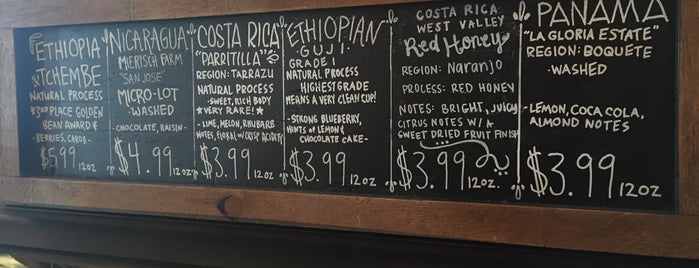 ETHIOPIA
NTCHEMBE
NATURAL PROCESS
3RD PLACE GOLDEN
BEAN AWARD
-BERRIES,
$5.99 12oz
NICARAGUA
MIERISCH FARM
"SAN JOSE"
MICRO-LOT
-WASHED
-CHOCOLATE, RAISIN-
$4.99 12oz
COSTA RICA
"PARRITILLA"
REGION: TARRAZU
NATURAL PROCESS
-SWEET, RICH BODY
*VERY RARE!*
-LIME, MELON, RHUBARB
NOTES, FLORAL W/ CRISP ACIDITY
$3.99 12oz
ETHIOPIAN
GUJI
GRADE 1
NATURAL PROCESS
HIGHEST GRADE
MEANS A VERY CLEAN CUP!
-STRONG BLUEBERRY,
HINTS OF LEMON &
CHOCOLATE CAKE-
$3.99 12oz
COSTA RICA
WEST VALLEY
Red Honey
REGION: NARANJO
PROCESS: RED HONEY
NOTES: BRIGHT, JUICY
CITRUS NOTES W/ A
SWEET DRIED FRUIT FINISH
$3.99 12oz.
PANAMA
"LA GLORIA ESTATE"
REGION: BOQUETE
-WASHED
-LEMON, COCA COLA,
ALMOND NOTES
$3.99 12oz